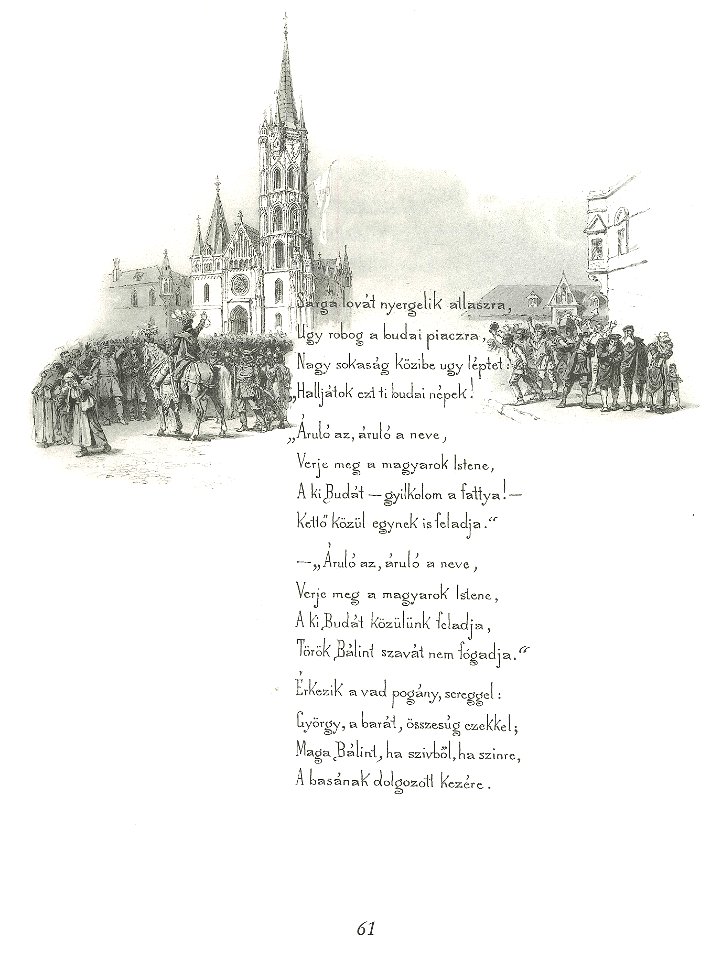 Sárga lovát nyergelik allaszra,
Ugy robog a budai piaczra,
Nagy sokaság közibe ugy léptet:
„Halljátok ezt ti budai népek!
„Áruló az, áruló a neve,
Verje meg a magyarok Istene,
A ki Budát — gyilkolom a fattya! —
Kettő közül egynek is feladja.“
— „Áruló az, áruló a neve,
Verje meg a magyarok Istene,
A ki Budát közülünk feladja,
Török Bálint szavát nem fogadja.“
Érkezik a vad pogány, sereggel:
György, a barát, összesúg ezekkel;
Maga Bálint, ha szivből, ha szinre,
A basának dolgozott kezére.
61